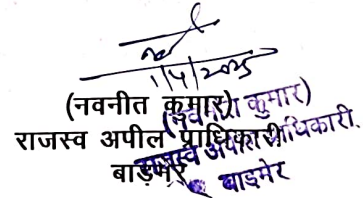 1/4/2025
(नवनीत कुमार)
राजस्व अपील प्राधिकारी
बाड़मेर
(नवनीत कुमार)
राजस्व अपील प्राधिकारी.
बाड़मेर